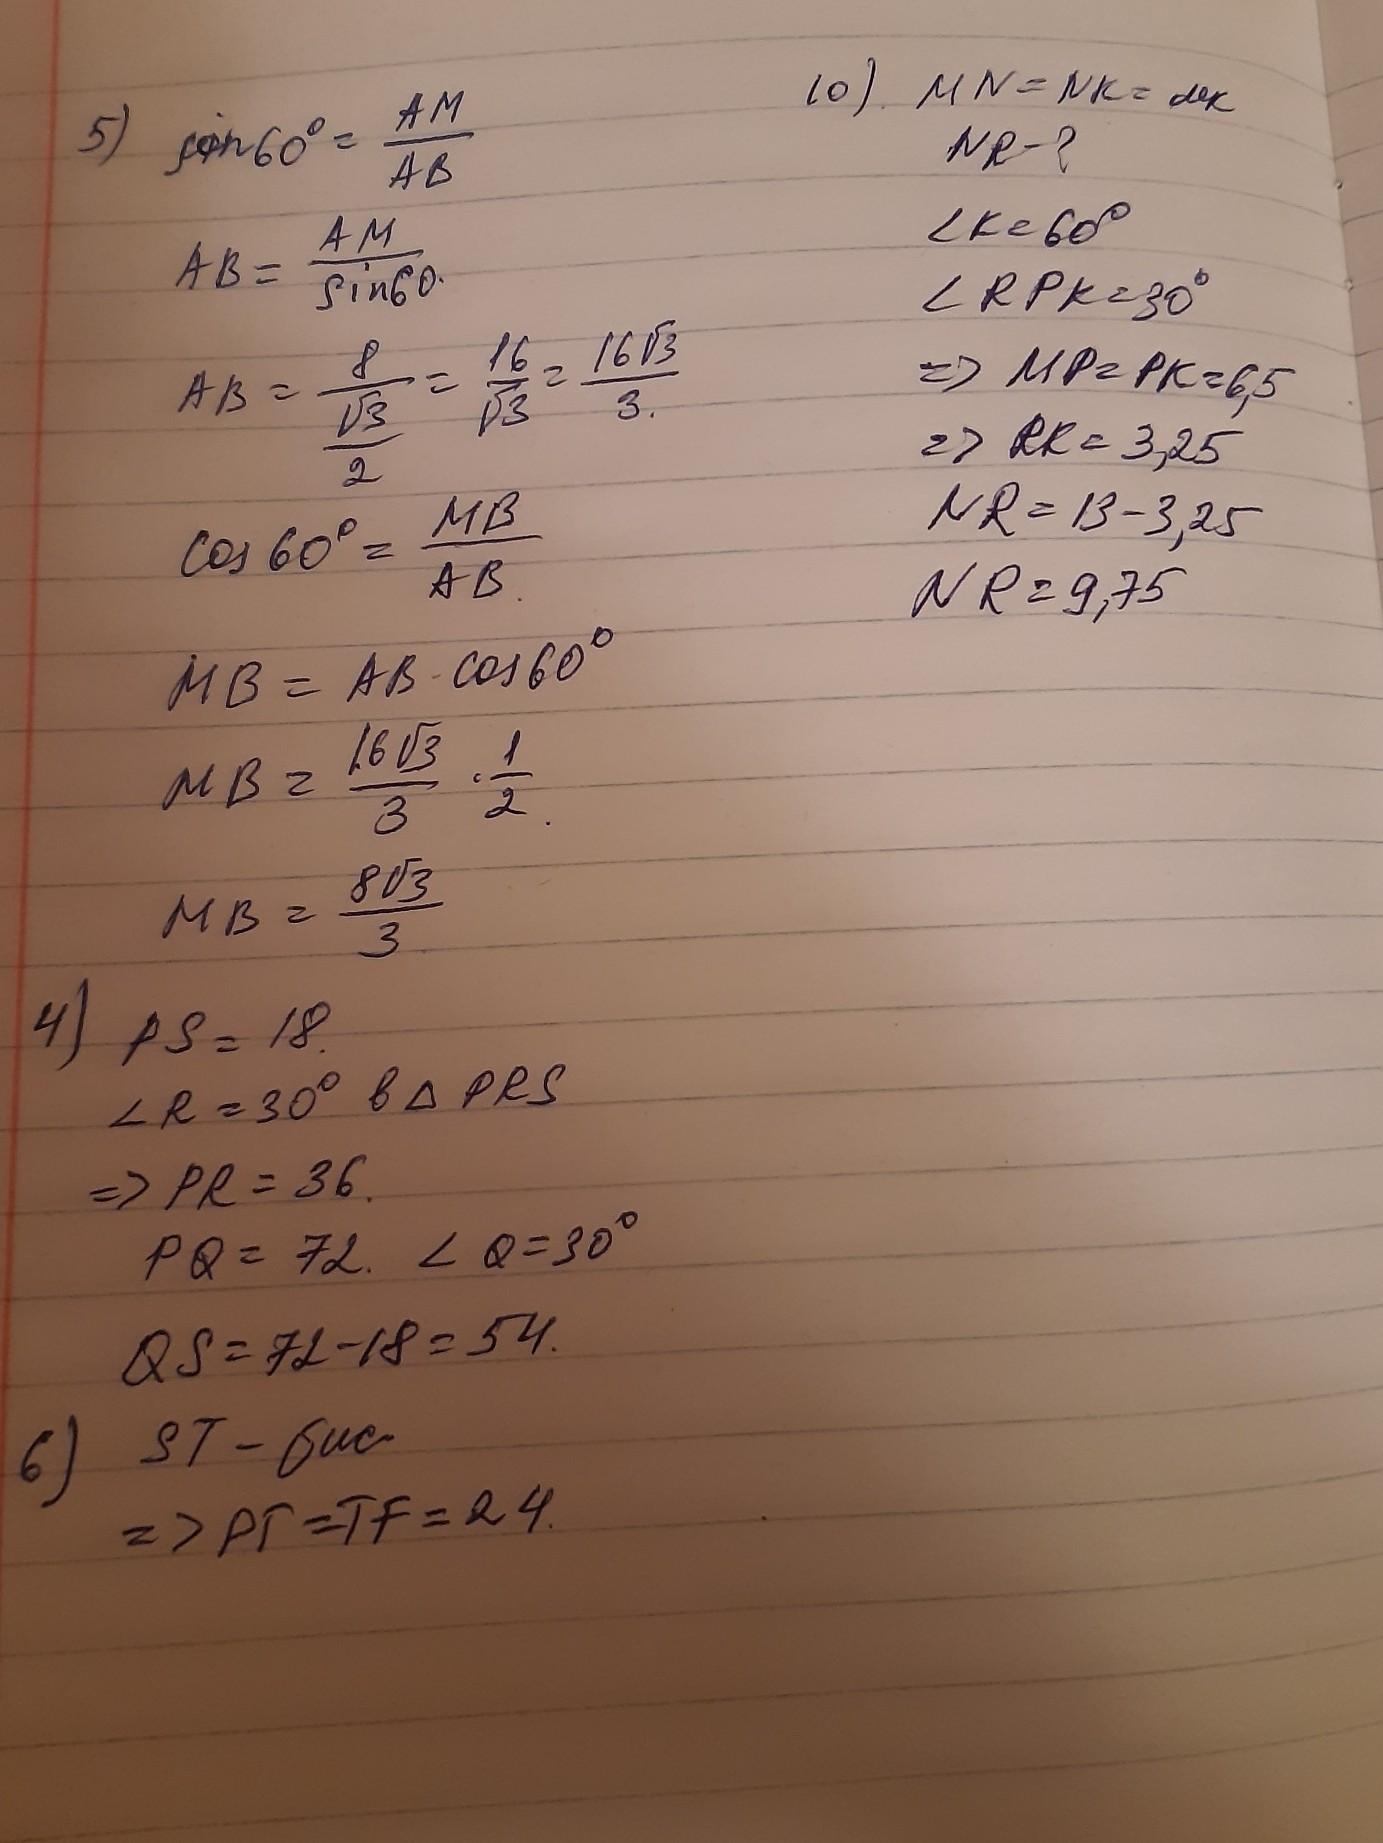 5) sin60° = AM/AB
AB = AM/sin60.
AB = 8/(√3/2) = 16/√3 = 16√3/3.
cos60° = MB/AB.
MB = AB · cos60°
MB = 16√3/3 · 1/2.
MB = 8√3/3
4) PS = 18.
∠R = 30° в △ PRS
=> PR = 36.
PQ = 72. ∠Q = 30°
QS = 72-18 = 54.
6) ST - бис
=> PT = TF = 24.
10). MN = NK = МК
NR - ?
∠K = 60°
∠RPK = 30°
=> MP = PK = 6,5
=> RK = 3,25
NR = 13 - 3,25
NR = 9,75